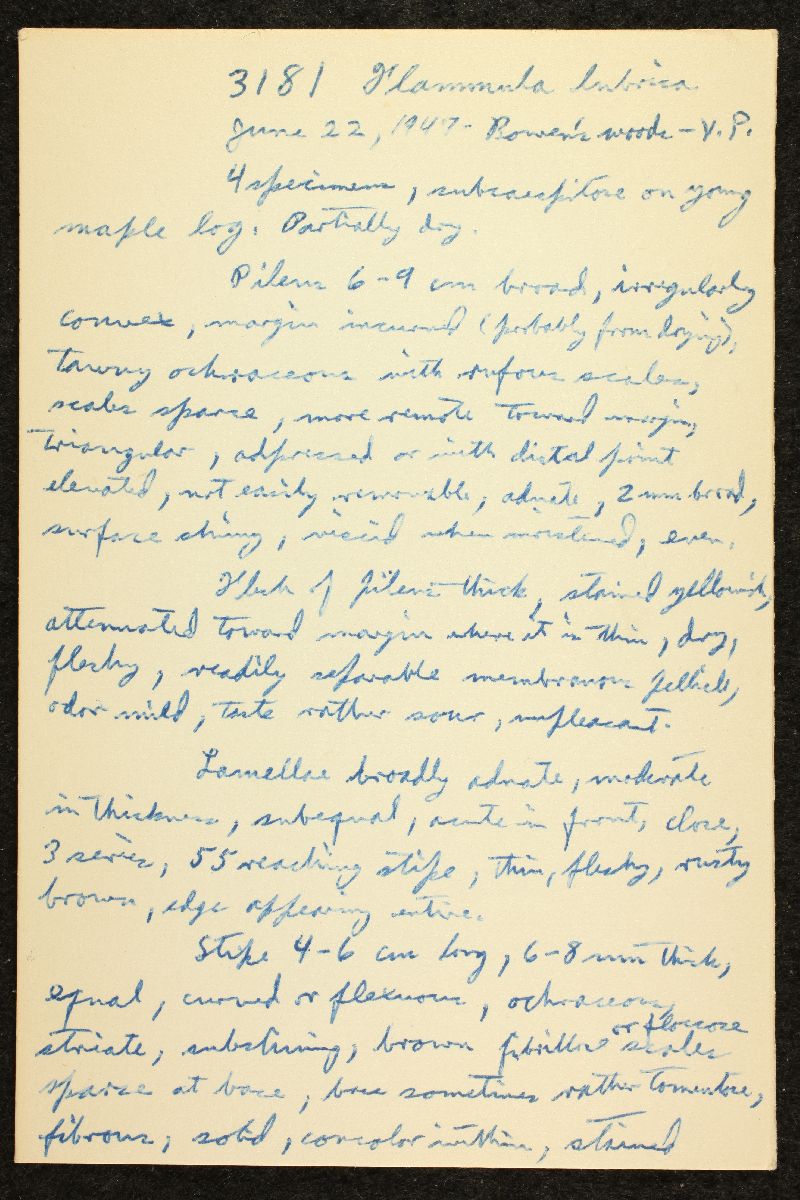 3181 Flammula lubrica
June 22, 1947 - Bowen's woods - V. P.
4 specimens, subcaespitose on young
maple log. Partially dry.
Pileus 6-9 cm broad, irregularly
convex, margin incurved (probably from drying),
tawny ochraceous with rufous scales,
scales sparse, more remote toward margin,
triangular, adpressed or with distal point
elevated, not easily removable, adnate, 2 mm broad,
surface shiny, viscid when moistened, even.
Flesh of pileus thick, stained yellowish,
attenuated toward margin where it is thin, dry,
fleshy, readily separable membranous pellicle,
odor mild, taste rather sour, unpleasant.
Lamellae broadly adnate, moderate
in thickness, subequal, acute in front, close,
3 series, 55 reaching stipe, thin, fleshy, rusty
brown, edge appearing entire.
Stipe 4-6 cm long, 6-8 mm thick,
equal, curved or flexuous, ochraceous,
striate, subshining, brown fibrillose or floccose scales
sparse at base, base sometimes rather tomentose,
fibrous, solid, concolor within, stained